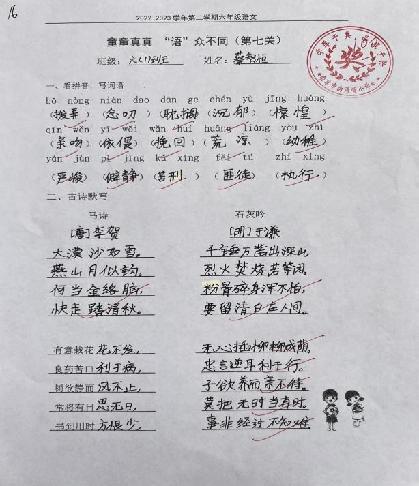 16
2022-2023学年第二学期六年级语文
童童真真 “语”众不同（第七关）
班级：六(1)班 姓名：
一、看拼音，写词语
bō nòng niàn dao dān ge chén yù jǐng huáng
(拨弄) (念叨) (耽搁) (沉郁) (惶)
qīn wěn yī wēi wǎn huí huāng liáng yòu zhì
(亲吻) (依偎) (挽回) (荒凉) (幼稚)
yán jùn pì jìng kǔ xíng fěi tú zhí xíng
(严峻) (僻静) (苦刑) (匪徒) (执行)
二、古诗默写
马诗 石灰吟
[唐]李贺 [明]于谦
大漠沙如雪， 千锤万凿出深山，
燕山月似钩。 烈火焚烧若等闲。
何当金络脑， 粉骨碎身浑不怕，
快走踏清秋。 要留清白在人间。
有意栽花花不发， 无心插柳柳成荫。
良药苦口利于病， 忠言逆耳利于行。
树欲静而风不止， 子欲养而亲不待。
常将有日思无日， 莫把无时当有时。
书到用时方恨少， 事非经过不知难。